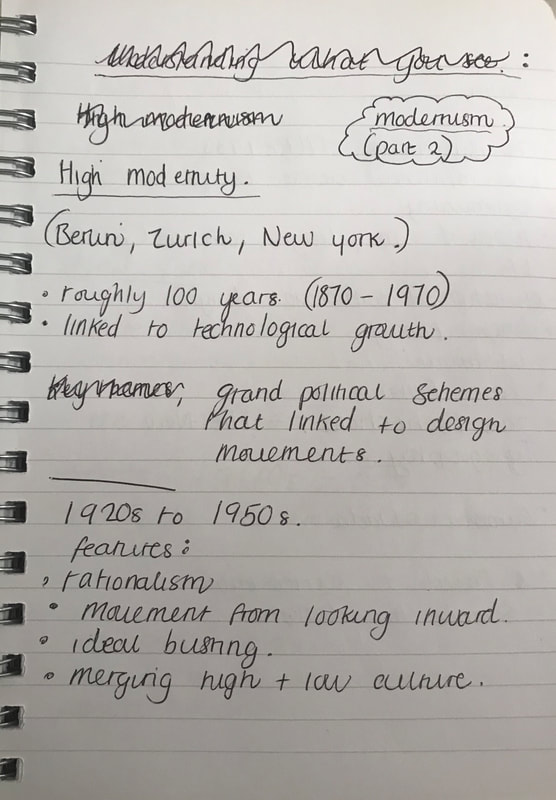 Understanding what you see. :
High modernism
modernism
(part 2)
High modernity.
(Berlin, Zurich, New york.)
• roughly 100 years. (1870 - 1970)
• linked to technological growth.
Key names, grand political schemes
that linked to design
movements.
1920s to 1950s.
features:
• rationalism
• movement from looking inward.
• ideal
• merging high + low culture.